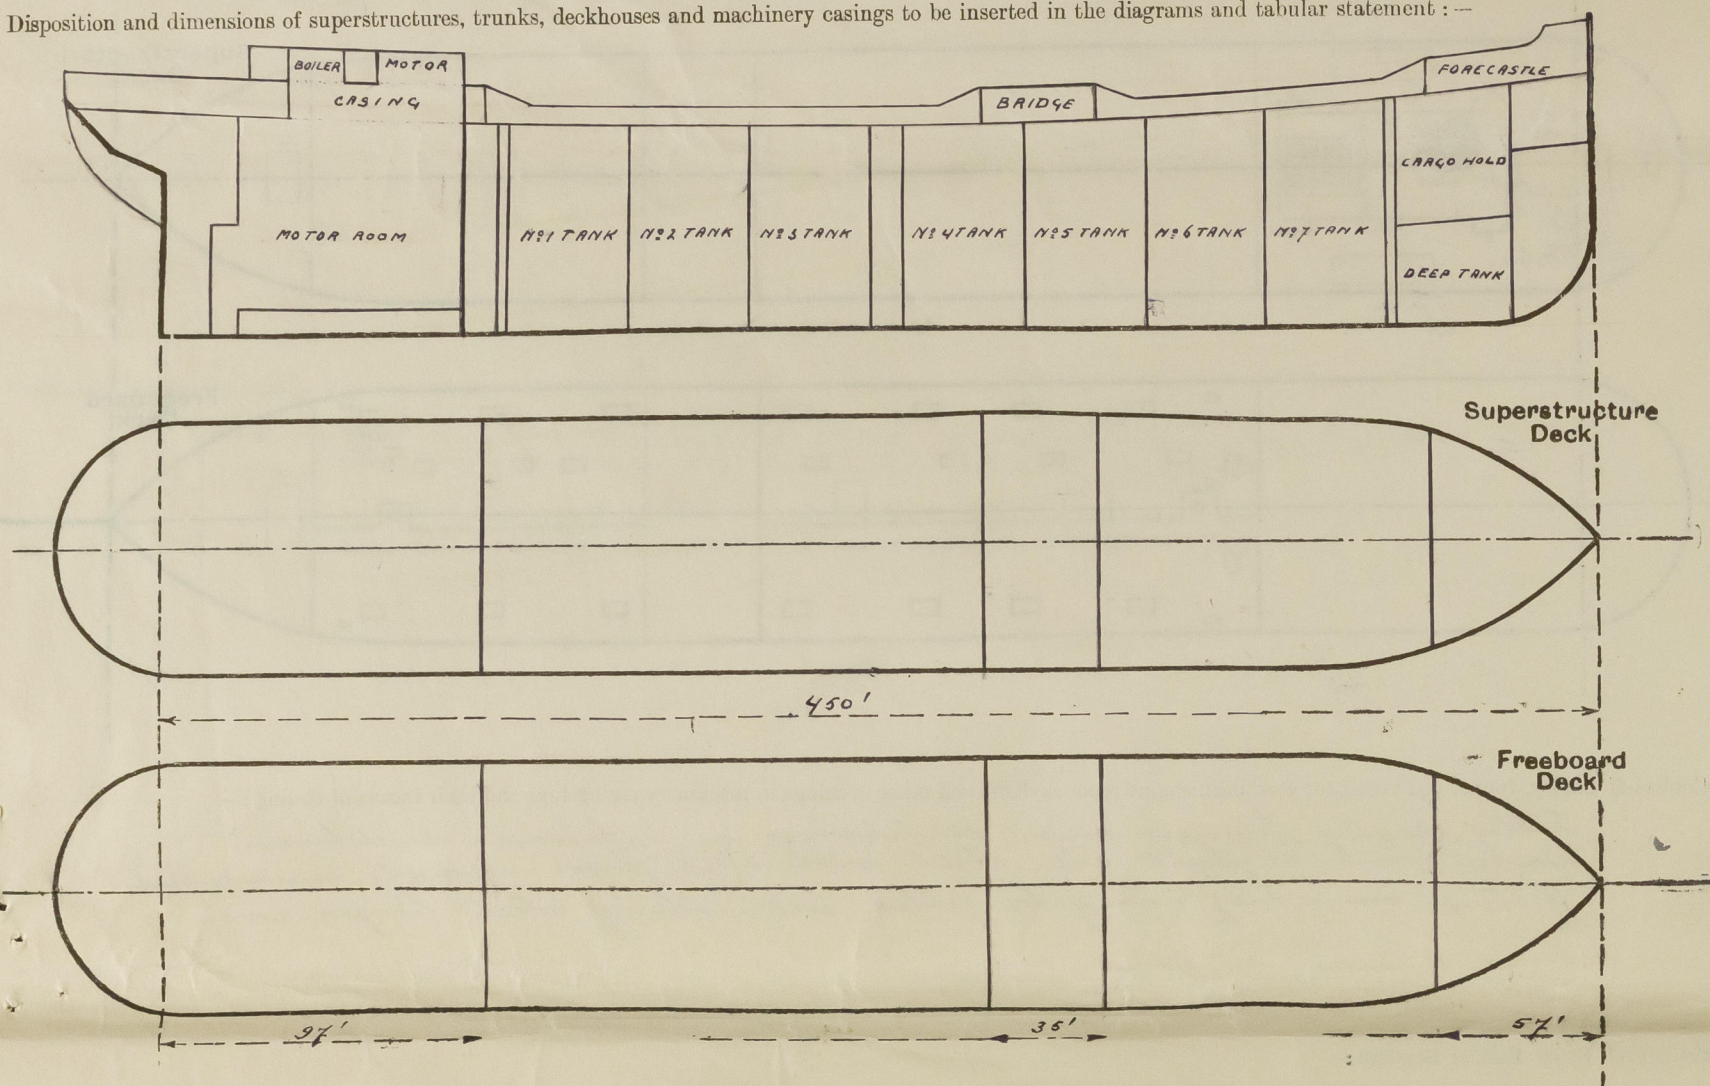 Disposition and dimensions of superstructures, trunks, deckhouses and machinery casings to be inserted in the diagrams and tabular statement : —
BOILER MOTOR
CASING
BRIDGE
FORECASTLE
CARGO HOLD
MOTOR ROOM
Nº1 TANK Nº2 TANK Nº3 TANK Nº4 TANK Nº5 TANK Nº6 TANK Nº7 TANK
DEEP TANK
Superstructure
Deck
450'
Freeboard
Deck
97' 36' 57'